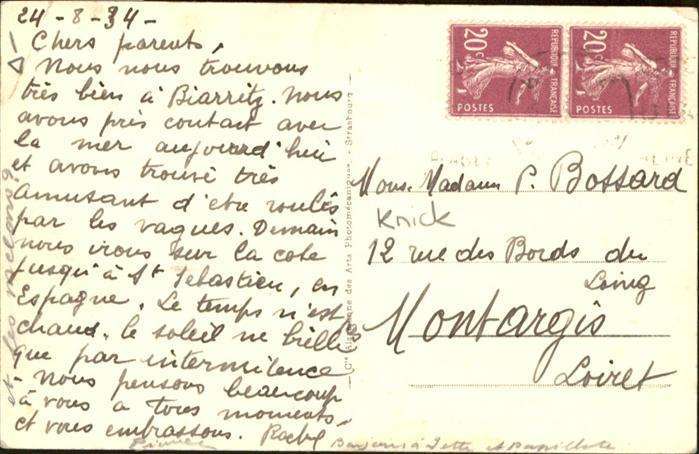 24-8-34-
Chers parents,
Nous nous trouvons
très bien à Biarritz. Nous
avons pris contact avec
la mer aujourd'hui
et avons trouvé très
amusant d'être roulés
par les vagues. Demain
nous irons sur la cote
jusqu'à St Sebastien, en
Espagne. Le temps n'est
chaud. le soleil ne brille
que par intermilence
- Nous pensons beaucoup
à vous a tous moments
et vous embrassons.
et les
20c
REPUBLIQUE FRANÇAISE
POSTES
20c
REPUBLIQUE FRANÇAISE
POSTES
Cie des Arts Photomécaniques - Strasbourg
Mons. Madame P. Bossard
Knick
12 rue des Bords du
Loing
Montargis
Loiret